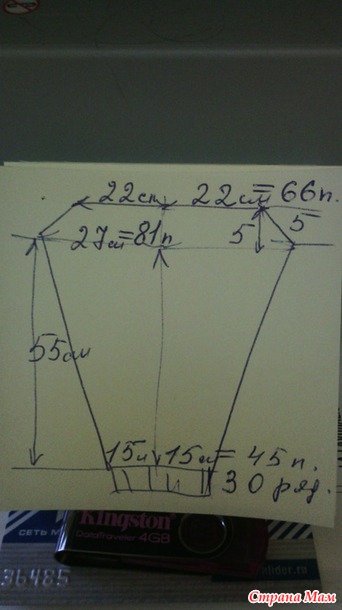 22см 22см=66п.
5 5
27см=81п
55см
15см 15см=45п.
30 ряд.
Kingston
DataTraveler 4GB
36485
Страна Мам